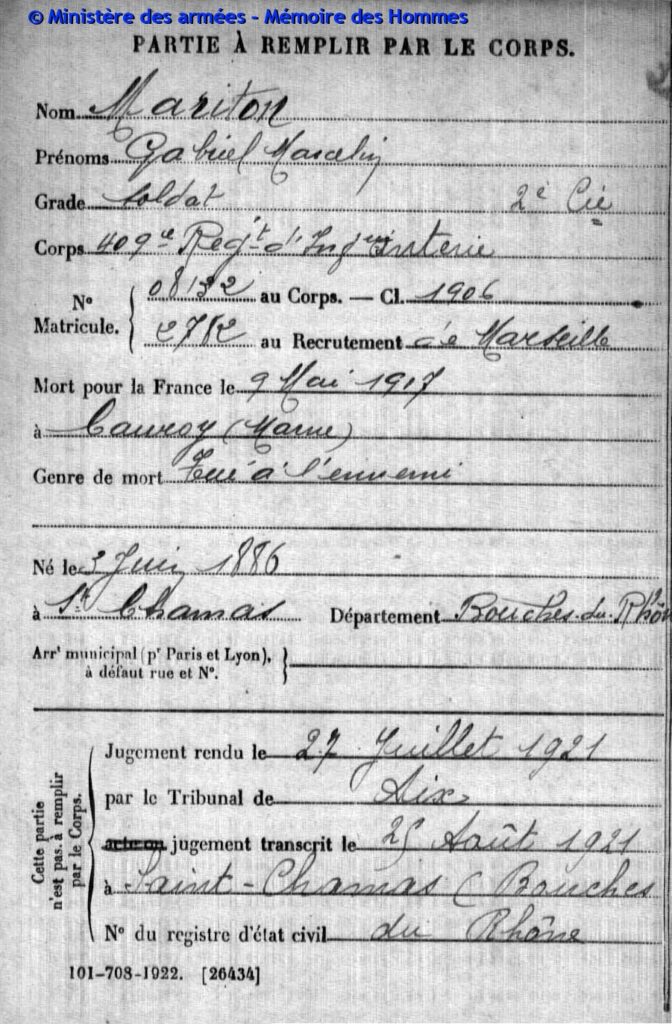 © Ministère des armées - Mémoire des Hommes
PARTIE À REMPLIR PAR LE CORPS.
Nom Mariton
Prénoms Gabriel Marcelin
Grade Soldat 2e Cie
Corps 409e Regt d'Infanterie
No Matricule. { 08132 au Corps. — Cl. 1906
2712 au Recrutement de Marseille
Mort pour la France le 9 Mai 1917
à Cauroy (Marne)
Genre de mort Tué à l'ennemi
Né le 3 Juin 1886
à St Chamas Département Bouches-du-Rhône
Arrt municipal (pr Paris et Lyon), }
à défaut rue et No.
Cette partie n'est pas à remplir par le Corps.
Jugement rendu le 27 Juillet 1921
par le Tribunal de Aix
acte ou jugement transcrit le 25 Août 1921
à Saint-Chamas (Bouches
No du registre d'état civil du Rhône
101-708-1922. [26434]